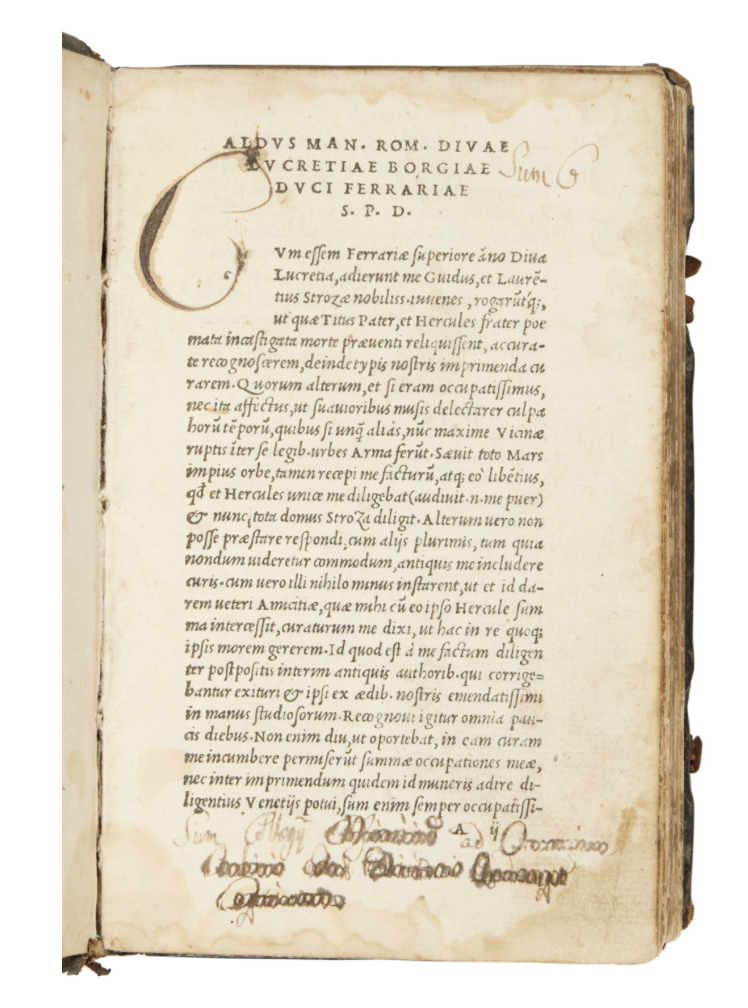 ALDVS MAN. ROM. DIVAE
LVCRETIAE BORGIAE
DVCI FERRARIAE
S. P. D.
Sum
CVm essem Ferrariæ superiore āno Diua
Lucretia, adierunt me Guidus, et Laurē-
tius Strozæ nobiliss. iuuenes, rogarūtq;,
ut quæ Titus Pater, et Hercules frater poe
mata incastigata morte præuenti reliquissent, accura-
te recognoscerem, deinde typis nostris imprimenda cu
rarem. Quorum alterum, et si eram occupatissimus,
nec ita affectus, ut suauioribus musis delectarer culpa
horū tēporū, quibus si unq̃ aliás, nūc maxime Vicinæ
ruptis īter se legib. urbes Arma ferūt. Sæuit toto Mars
impius orbe, tamen recepi me facturū, atq; eò libētius,
qđ et Hercules unice me diligebat (audiuit .n. me puer)
& nunc, tota domus Stroza diligit. Alterum uero non
posse præstare respondi, cum alijs plurimis, tum quia
nondum uideretur commodum, antiquis me includere
curis. cum uero illi nihilo minus instarent, ut et id da-
rem ueteri Amicitiæ, quæ mihi cū eo ipso Hercule sum
ma intercessit, curaturum me dixi, ut hac in re quoq;
ipsis morem gererem. Id quod est à me factum diligen
ter postpositis interim antiquis authorib. qui corrige=
bantur exituri & ipsi ex ædib. nostris emendatissimi
in manus studiosorum. Recognoui igitur omnia pau-
cis diebus. Non enim diu, ut oportebat, in eam curam
me incumbere permiserūt summæ occupationes meæ,
nec inter imprimendum quidem id muneris adire di-
ligentius Venetijs potui, sum enim semper occupatissi-
A ij
Sum Collegij ad